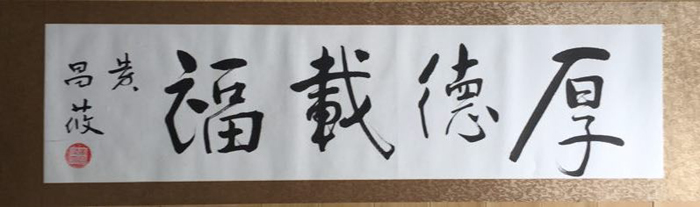 厚德載福
昌莜